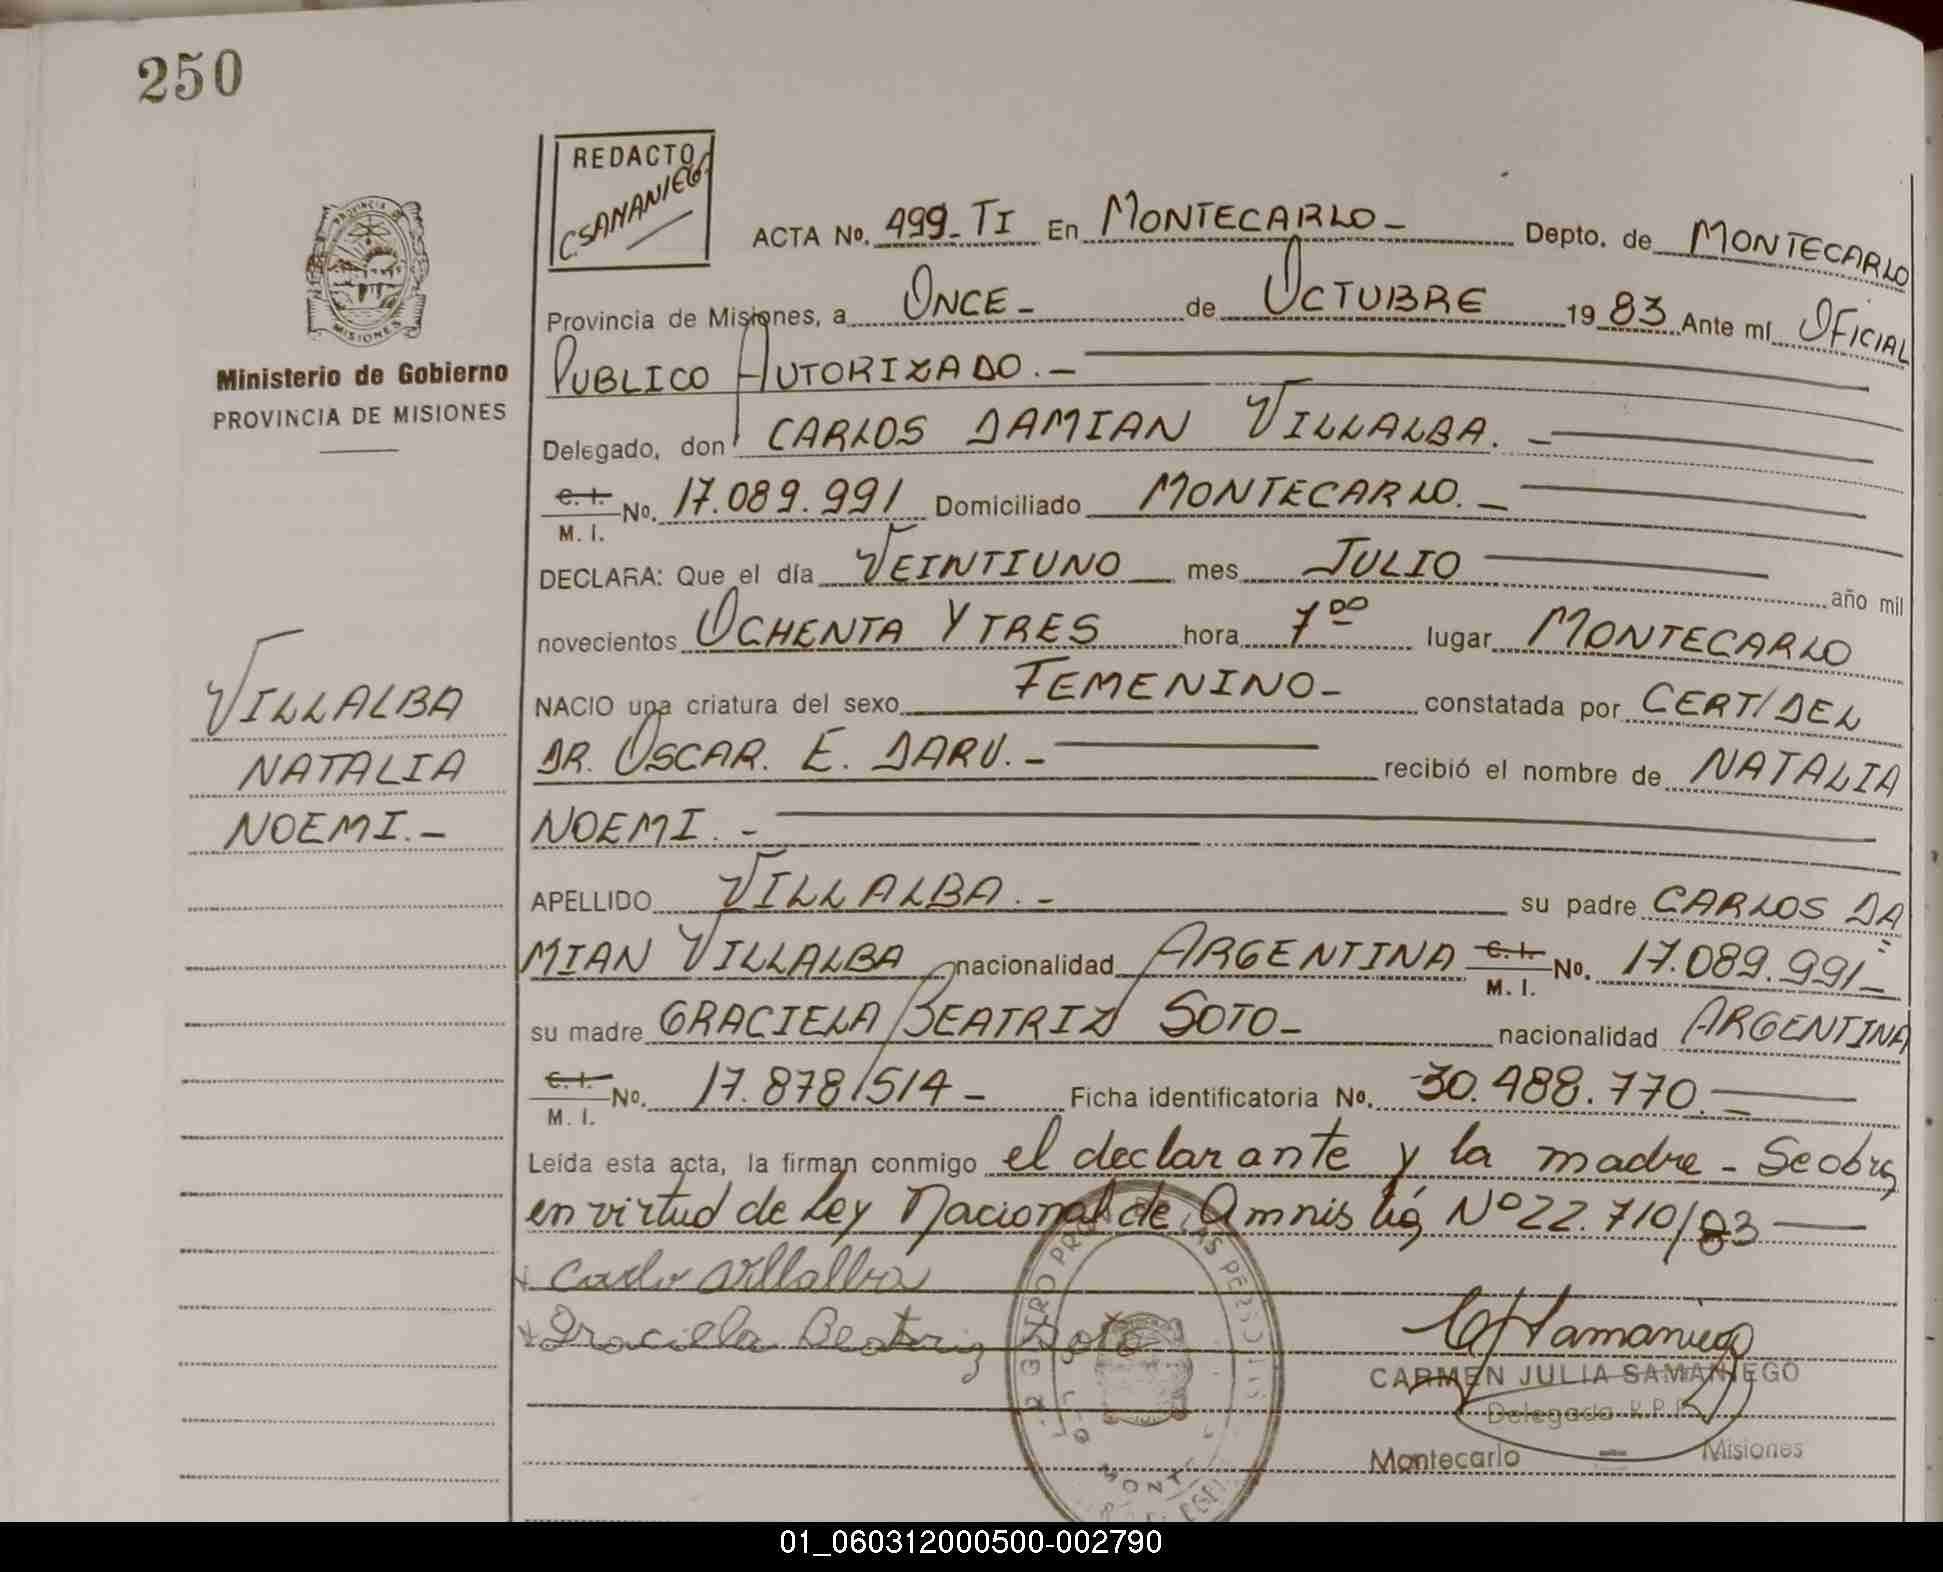 250
REDACTO
C.SAMANIEGO
PROVINCIA DE
MISIONES
Ministerio de Gobierno
PROVINCIA DE MISIONES
VILLALBA
NATALIA
NOEMI.-
ACTA No. 499-TI En MONTECARLO- Depto. de MONTECARLO
Provincia de Misiones, a ONCE- de OCTUBRE 1983 Ante mí OFICIAL
PUBLICO AUTORIZADO.-
Delegado, don CARLOS DAMIAN VILLALBA.-
C. I.
M. I. No. 17.089.991 Domiciliado MONTECARLO.-
DECLARA: Que el día VEINTIUNO mes JULIO año mil
novecientos OCHENTA Y TRES hora 7oo lugar MONTECARLO
NACIO una criatura del sexo FEMENINO- constatada por CERT/DEL
DR. OSCAR. E. DARU.- recibió el nombre de NATALIA
NOEMI.-
APELLIDO VILLALBA.- su padre CARLOS DA
MIAN VILLALBA nacionalidad ARGENTINA C. I. M. I. No. 17.089.991-
su madre GRACIELA BEATRIZ SOTO- nacionalidad ARGENTINA
C. I.
M. I. No. 17.878.514- Ficha identificatoria No. 30.488.770.-
Leída esta acta, la firman conmigo el declarante y la madre - Se obra
en virtud de Ley Nacional de Amnistía Nº 22.710/83
Carlos Villalba
Graciela Beatriz Soto
CJSamaniego
CARMEN JULIA SAMANIEGO
Delegada R.P.P.
Montecarlo - Misiones
01_060312000500-002790